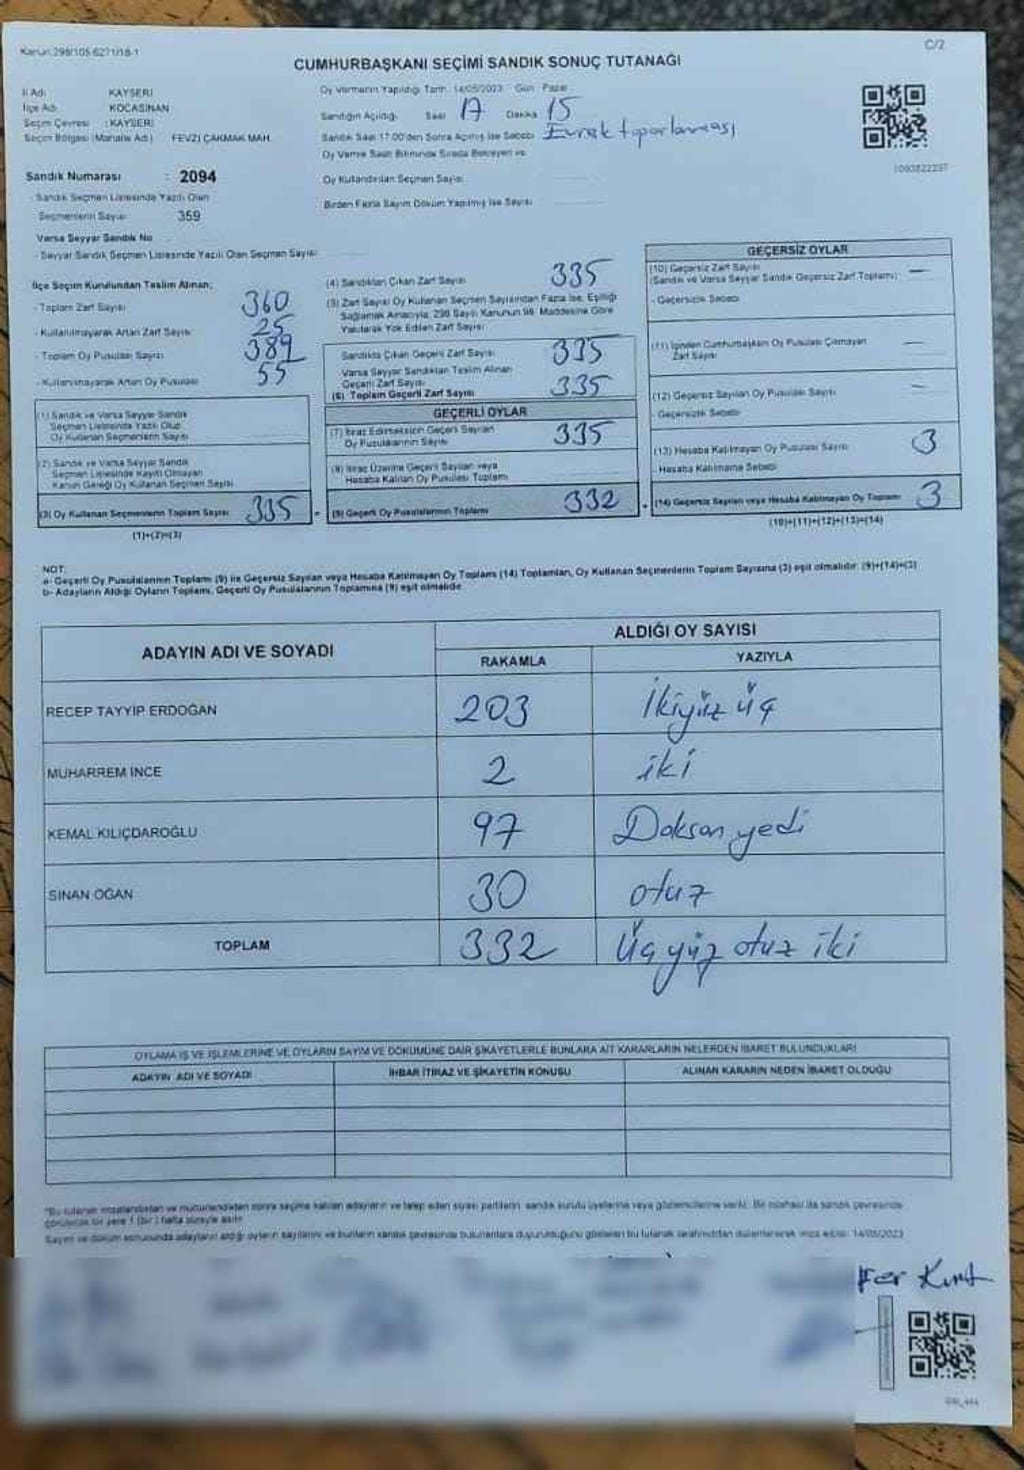 Kanun:298/105 6271/18-1
C/2
CUMHURBAŞKANI SEÇİMİ SANDIK SONUÇ TUTANAĞI
İl Adı KAYSERİ
İlçe Adı KOCASİNAN
Seçim Çevresi : KAYSERİ
Seçim Bölgesi (Mahalle Adı) FEVZİ ÇAKMAK MAH.
Oy Vermenin Yapıldığı Tarih 14/05/2023 Gün Pazar
Sandığın Açıldığı Saat 17 Dakika 15
Sandık Saat 17:00'den Sonra Açılmış İse Sebebi Evrak toparlanması
Oy Verme Saati Bitiminde Sırada Bekleyen ve
Oy Kullandırılan Seçmen Sayısı
Birden Fazla Sayım Döküm Yapılmış İse Sayısı
Sandık Numarası : 2094
Sandık Seçmen Listesinde Yazılı Olan
Seçmenlerin Sayısı 359
Varsa Seyyar Sandık No
- Seyyar Sandık Seçmen Listesinde Yazılı Olan Seçmen Sayısı
İlçe Seçim Kurulundan Teslim Alınan;
- Toplam Zarf Sayısı 360
- Kullanılmayarak Artan Zarf Sayısı 25
- Toplam Oy Pusulası Sayısı 389
- Kullanılmayarak Artan Oy Pusulası 55
(1) Sandık ve Varsa Seyyar Sandık
Seçmen Listesinde Yazılı Olup
Oy Kullanan Seçmenlerin Sayısı
(2) Sandık ve Varsa Seyyar Sandık
Seçmen Listesinde Kayıtlı Olmayan
Kanun Gereği Oy Kullanan Seçmen Sayısı
(3) Oy Kullanan Seçmenlerin Toplam Sayısı 335
(1)+(2)=(3)
(4) Sandıktan Çıkan Zarf Sayısı 335
(5) Zarf Sayısı Oy Kullanan Seçmen Sayısından Fazla İse, Eşitliği
Sağlamak Amacıyla, 298 Sayılı Kanunun 98. Maddesine Göre
Yakılarak Yok Edilen Zarf Sayısı
Sandıkta Çıkan Geçerli Zarf Sayısı 335
Varsa Seyyar Sandıktan Teslim Alınan
Geçerli Zarf Sayısı
(6) Toplam Geçerli Zarf Sayısı 335
GEÇERLİ OYLAR
(7) İtiraz Edilmeksizin Geçerli Sayılan
Oy Pusulalarının Sayısı 335
(8) İtiraz Üzerine Geçerli Sayılan veya
Hesaba Katılan Oy Pusulası Toplamı
(9) Geçerli Oy Pusulalarının Toplamı 332
GEÇERSİZ OYLAR
(10) Geçersiz Zarf Sayısı
(Sandık ve Varsa Seyyar Sandık Geçersiz Zarf Toplamı) —
- Geçersizlik Sebebi
(11) İçinden Cumhurbaşkanı Oy Pusulası Çıkmayan
Zarf Sayısı —
(12) Geçersiz Sayılan Oy Pusulası Sayısı —
- Geçersizlik Sebebi
(13) Hesaba Katılmayan Oy Pusulası Sayısı 3
- Hesaba Katılmama Sebebi
(14) Geçersiz Sayılan veya Hesaba Katılmayan Oy Toplamı 3
(10)+(11)+(12)+(13)=(14)
NOT:
a- Geçerli Oy Pusulalarının Toplamı (9) ile Geçersiz Sayılan veya Hesaba Katılmayan Oy Toplamı (14) Toplamları, Oy Kullanan Seçmenlerin Toplam Sayısına (3) eşit olmalıdır. (9)+(14)=(3)
b- Adayların Aldığı Oyların Toplamı, Geçerli Oy Pusulalarının Toplamına (9) eşit olmalıdır
ADAYIN ADI VE SOYADI
ALDIĞI OY SAYISI
RAKAMLA YAZIYLA
RECEP TAYYİP ERDOĞAN 203 İkiyüz üç
MUHARREM İNCE 2 iki
KEMAL KILIÇDAROĞLU 97 Doksan yedi
SİNAN OĞAN 30 otuz
TOPLAM 332 Üç yüz otuz iki
OYLAMA İŞ VE İŞLEMLERİNE VE OYLARIN SAYIM VE DÖKÜMÜNE DAİR ŞİKAYETLERLE BUNLARA AİT KARARLARIN NELERDEN İBARET BULUNDUKLARI
ADAYIN ADI VE SOYADI İHBAR İTİRAZ VE ŞİKAYETİN KONUSU ALINAN KARARIN NEDEN İBARET OLDUĞU